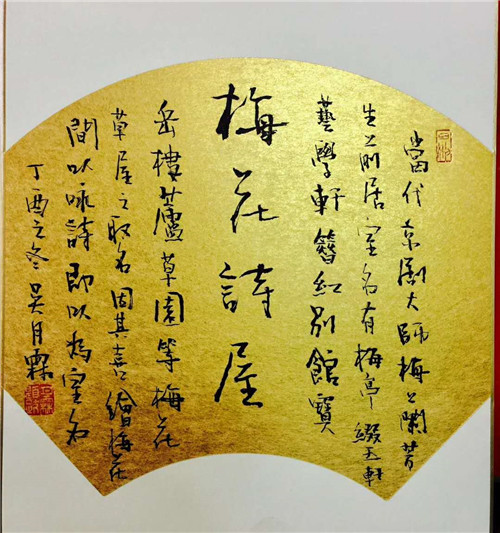 當代京劇大師梅蘭芳
生前居室名有梅亭綴玉軒
藝學軒簪紅別館寶
梅花詩屋
岳樓蘆草園等梅花
草屋之取名因其喜繪梅花
間以咏詩即以為室名
丁酉之冬吴月霖